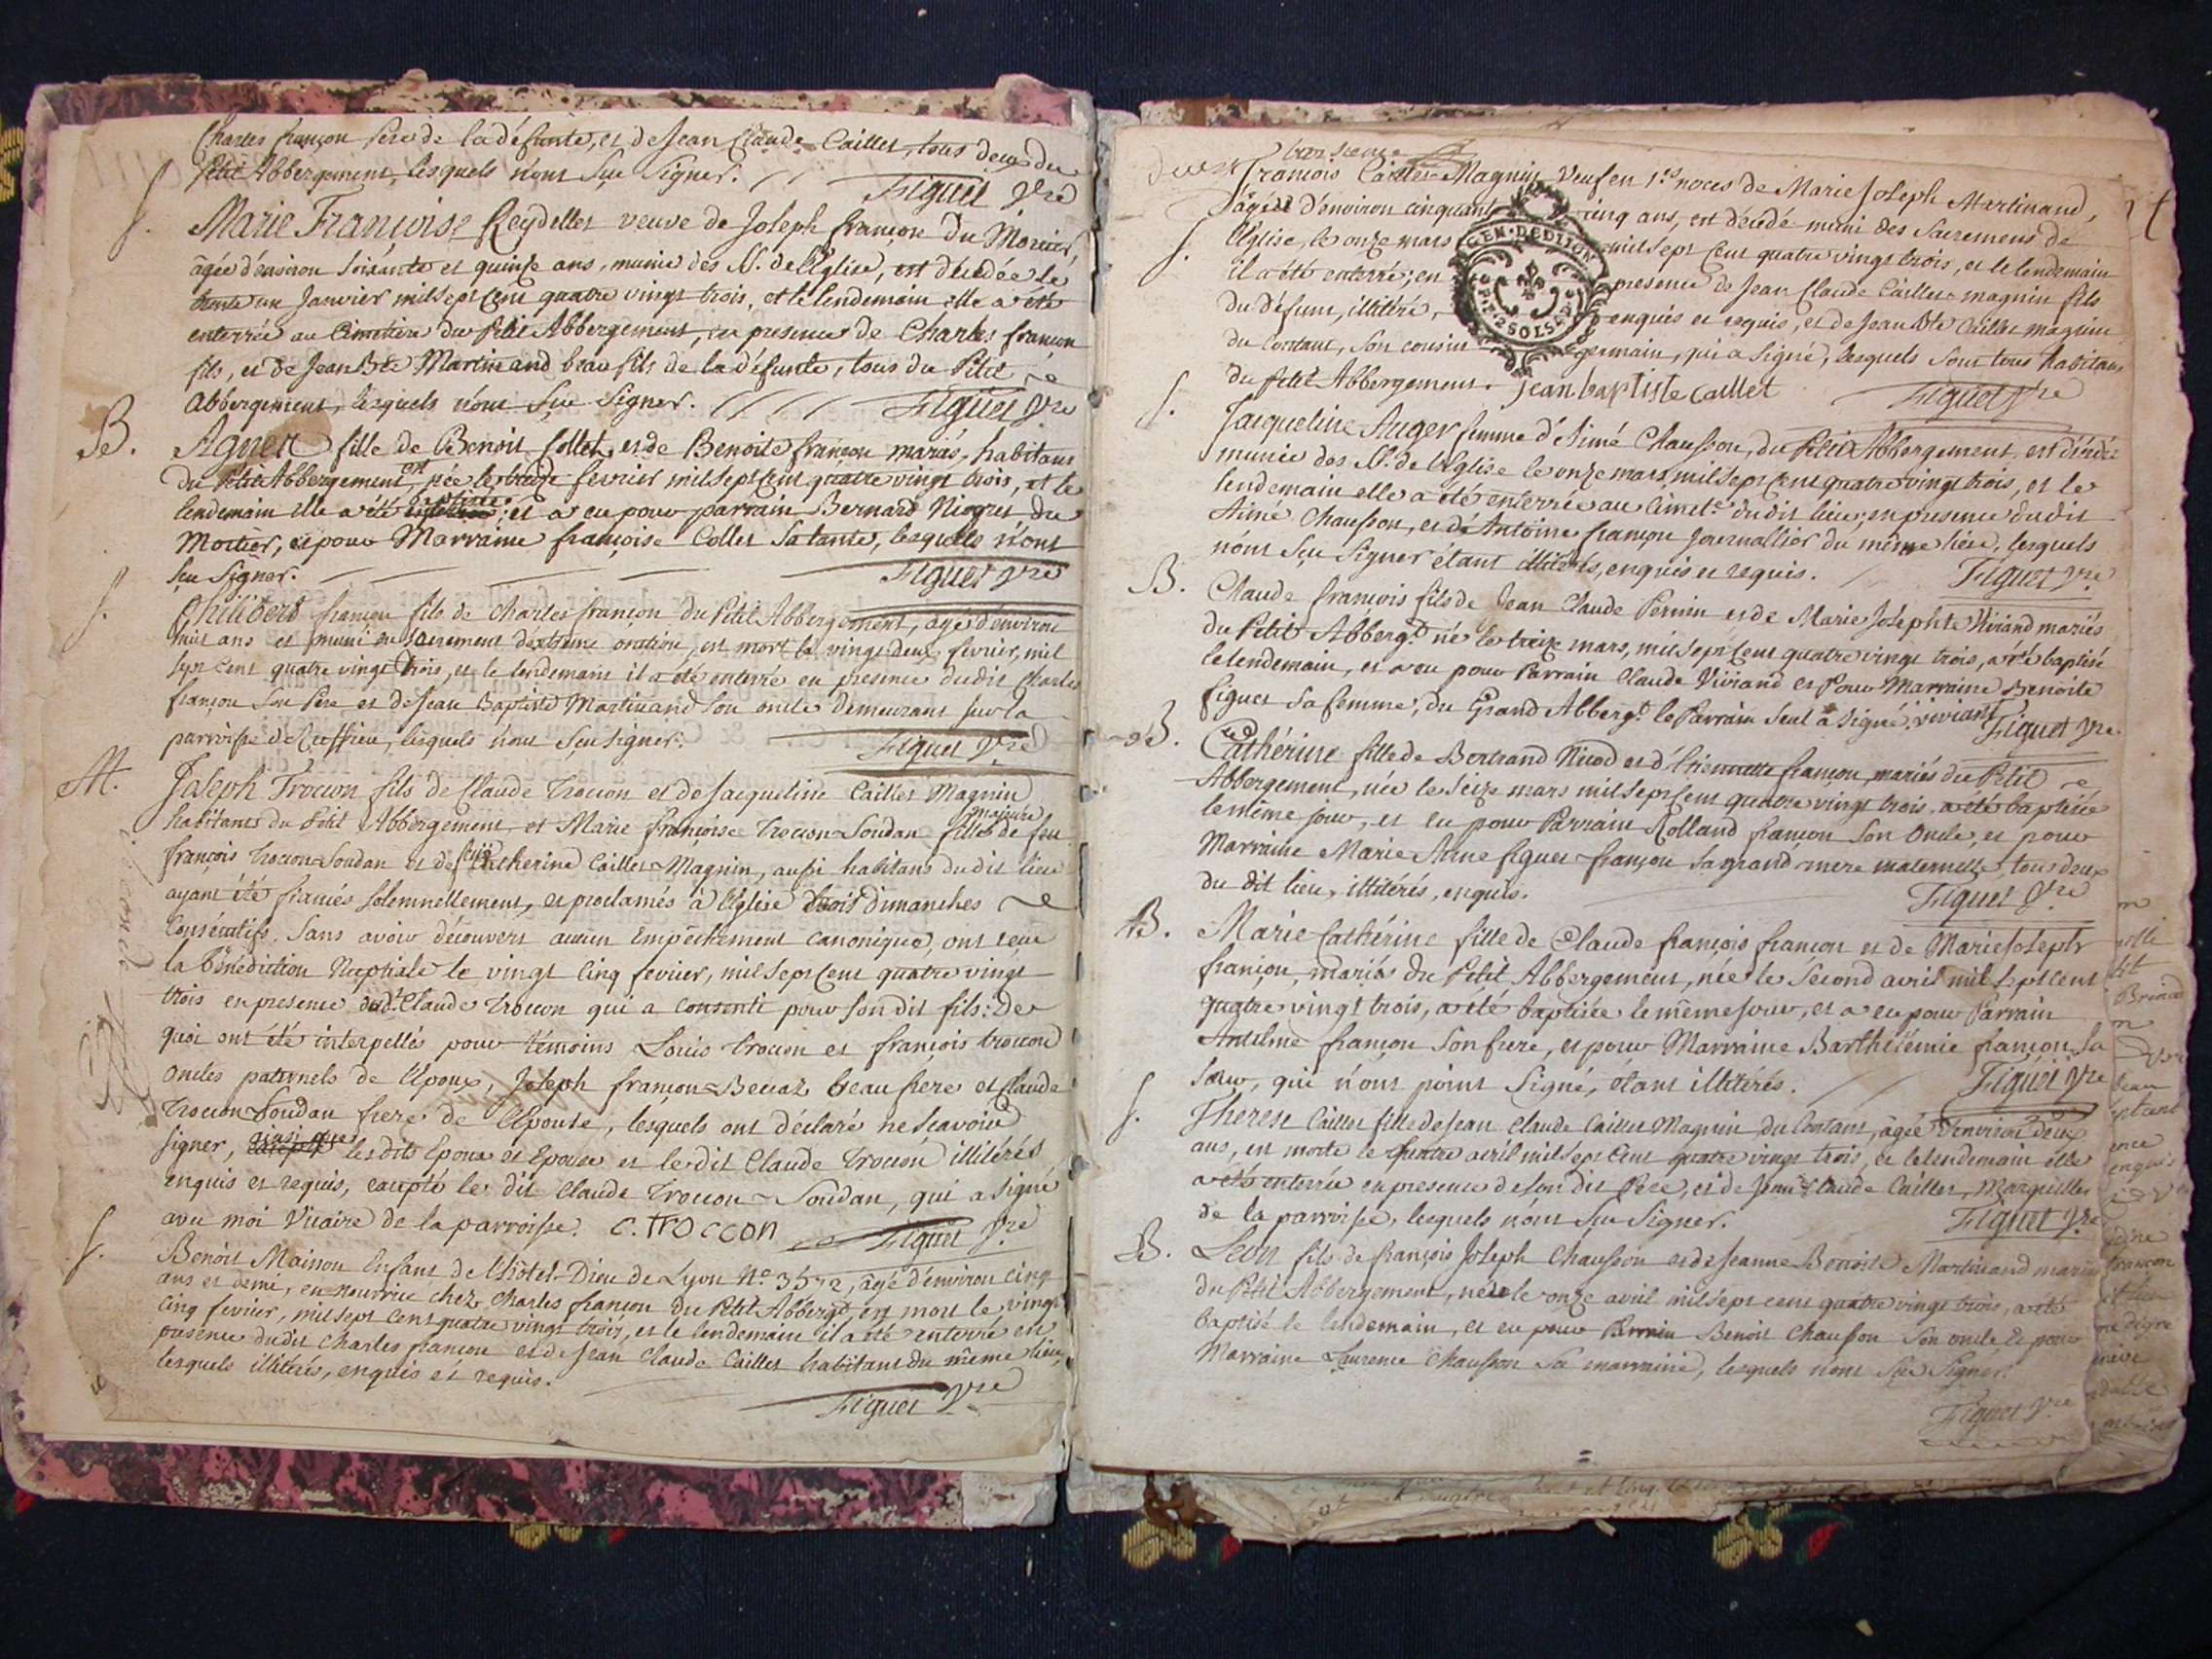 Charles françon pere de la défunte, et de Jean Claude Caillet, tous deux du
Petit Abbergement, lesquels n'ont sçu signer. Figuet Vre
S. Marie Françoise Reydellet veuve de Joseph françon du Mortier,
âgée d'environ soixante et quinze ans, munie des SS. de l'Eglise, est décédée le
trente un Janvier mil sept cent quatre vingt trois, et le lendemain elle a été
enterrée au Cimetiere du Petit Abbergement, en presence de Charles françon
fils, et de Jean Bte Martinand beau fils de la défunte, tous du Petit
Abbergement, lesquels n'ont sçu signer. Figuet Vre
B. Agnès fille de Benoit Collet, et de Benoite françon mariés, habitans
du Petit Abbergement, est née le treize fevrier mil sept cent quatre vingt trois, et le
lendemain elle a été baptisée; et a eu pour parrain Bernard Niogret du
Mortier, et pour Marraine françoise Collet sa tante, lesquels n'ont
sçu signer. Figuet Vre
S. Philibert françon fils de Charles françon du Petit Abbergement, âgé d'environ
huit ans et muni du sacrement d'extreme onction, est mort le vingt deux fevrier, mil
sept cent quatre vingt trois, et le lendemain il a été enterré en presence dudit Charles
françon son Pere et de Jean Baptiste Martinand son oncle demeurans sur la
parroisse de Ruffieu, lesquels n'ont sçu signer. Figuet Vre
M. Joseph Trocon fils de Claude Trocon et de Jacqueline Caillet Magnin
habitants du Petit Abbergement, et Marie françoise Trocon-Soudan fille majeure de feu
françois Trocon-Soudan et de feue Catherine Caillet-Magnin, aussi habitans dudit lieu
ayant été fiancés solemnellement, et proclamés à l'Eglise trois dimanches
Consécutifs, sans avoir découvert aucun Empêchement canonique, ont reçu
la bénédiction Nuptiale le vingt cinq fevrier, mil sept cent quatre vingt
trois en presence dudt. Claude Trocon qui a consenti pour son dit fils: De
quoi ont été interpellés pour témoins Louis Trocon et françois trocon
oncles paternels de l'époux, Joseph françon-Beccaz beau frere et Claude
Trocon-Soudan frere de l'Epouse, lesquels ont déclaré ne sçavoir
signer, ainsi que les dits Epoux et Epouse et ledit Claude Trocon illitérés
enquis et requis, excepté le dit Claude Trocon-Soudan, qui a signé
avec moi Vicaire de la parroisse. C. troccon Figuet Vre
S. Benoit Maison Enfant de l'hôtel-Dieu de Lyon No. 3572, âgé d'environ cinq
ans et demi, en nourrice chez Charles françon du Petit Abbergt. est mort le vingt
cinq fevrier, mil sept cent quatre vingt trois, et le lendemain il a été enterré en
presence dudit Charles françon et de Jean Claude Caillet habitans du même lieu,
lesquels illitérés, enquis et requis.
Figuet Vre
GEN. DE DIJON
françois Caillet-Magnin, Veuf en 1es noces de Marie Joseph Martinand,
âgé d'environ cinquante cinq ans, est décédé muni des Sacremens de
S. l'Eglise, le onze mars mil sept cent quatre vingt trois, et le lendemain
il a été enterré; en presence de Jean Claude Caillet-magnin fils
du défunt, illitéré, enquis et requis, et de Jean Bte Caillet magnin
du Contant, son cousin germain, qui a signé, lesquels sont tous habitans
du Petit Abbergement. jean baptiste Caillet Figuet Vre
S. Jacqueline Auger femme d'Aimé Chausson, du Petit Abbergement, est décédée
munie des SS. de l'Eglise le onze mars mil sept cent quatre vingt trois, et le
lendemain elle a été enterrée au Cimete. du dit lieu; en presence dudit
Aimé Chausson, et de Antoine françon Journallier du même lieu, lesquels
n'ont sçu signer étant illitérés, enquis et requis. Figuet Vre
B. Claude françois fils de Jean Claude Perrin et de Marie Josephte Viviand mariés
du Petit Abbergt. né le treize mars, mil sept cent quatre vingt trois, a été baptisé
le lendemain, et a eu pour Parrain Claude Viviand et Pour Marraine Benoite
figuet sa femme, du Grand Abbergt. le Parrain seul a signé. viviant Figuet Vre
B. Cathérine fille de Bertrand Nicod et d'Etiennette françon, mariés du Petit
Abbergement, née le seize mars mil sept cent quatre vingt trois, a été baptisée
le même jour, et eu pour Parrain Rolland françon son Oncle, et pour
Marraine Marie Anne figuet-françon sa grand-mere maternelle, tous deux
du dit lieu, illitérés, enquis. Figuet Vre
B. Marie Cathérine fille de Claude françois françon et de Marie Joseph
françon, mariés du Petit Abbergement, née le second avril mil sept cent
quatre vingt trois, a été baptisée le même jour, et a eu pour Parrain
Antelme françon son frere, et pour Marraine Barthélémie françon sa
sœur, qui n'ont point signé, étant illitérés. Figuet Vre
S. Therese Caillet fille de Jean Claude Caillet Magnin du Contant, âgée d'environ deux
ans, est morte le quatre avril mil sept cent quatre vingt trois, et le lendemain elle
a été enterrée en presence de son dit Pere, et de Jean Claude Caillet, Marguillier
de la parroisse, lesquels n'ont sçu signer. Figuet Vre
B. Léon fils de françois Joseph Chausson et de Jeanne Benoite Martinand mariés
du Petit Abbergement, né le onze avril mil sept cent quatre vingt trois, a été
baptisé le lendemain, et eu pour Parrain Benoit Chausson son oncle, et pour
Marraine Laurence Chausson sa marraine, lesquels n'ont sçu signer.
Figuet Vre